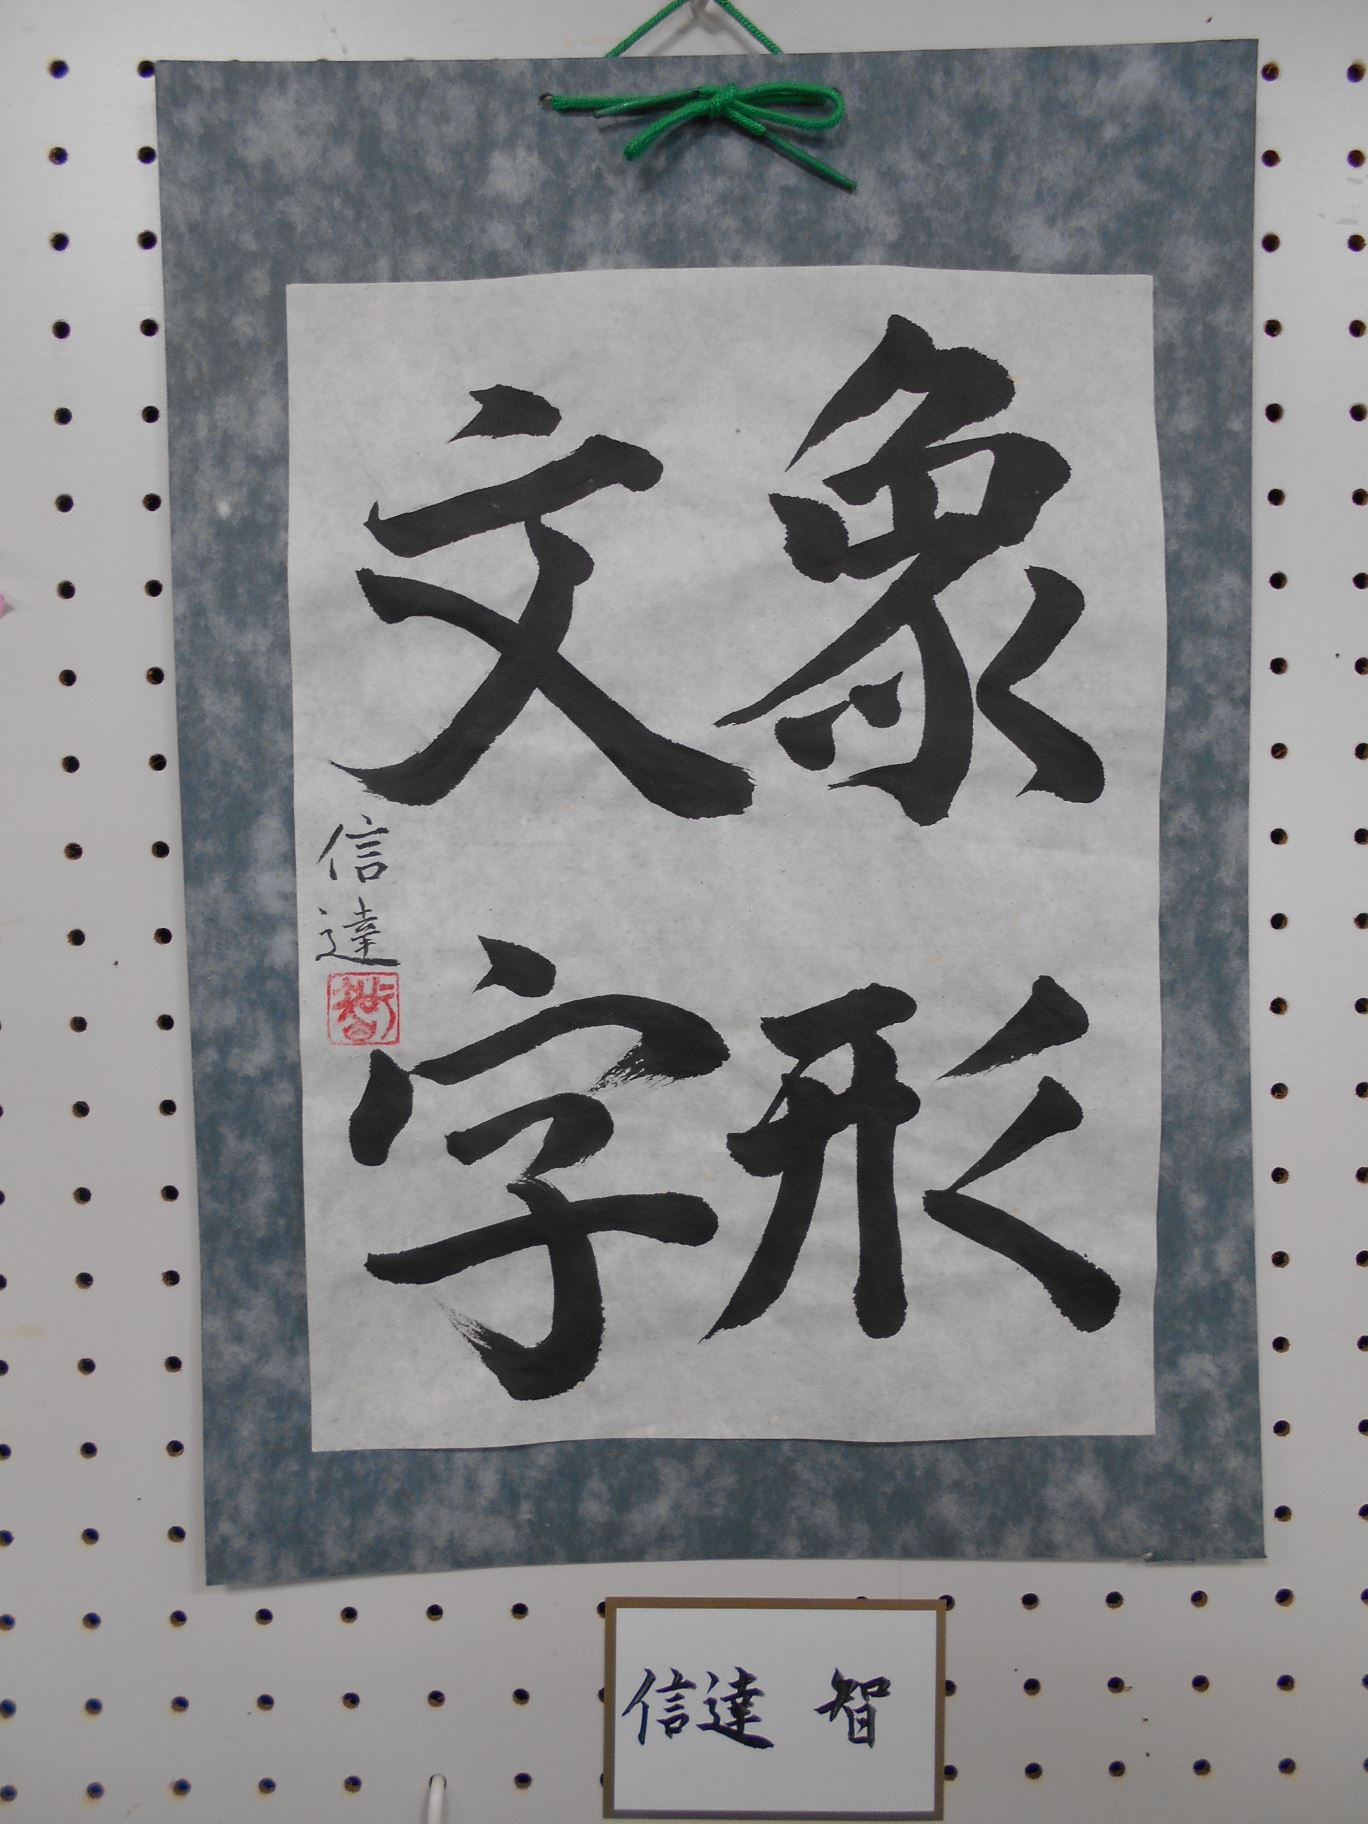 象形
文字
信達
智
信達 智